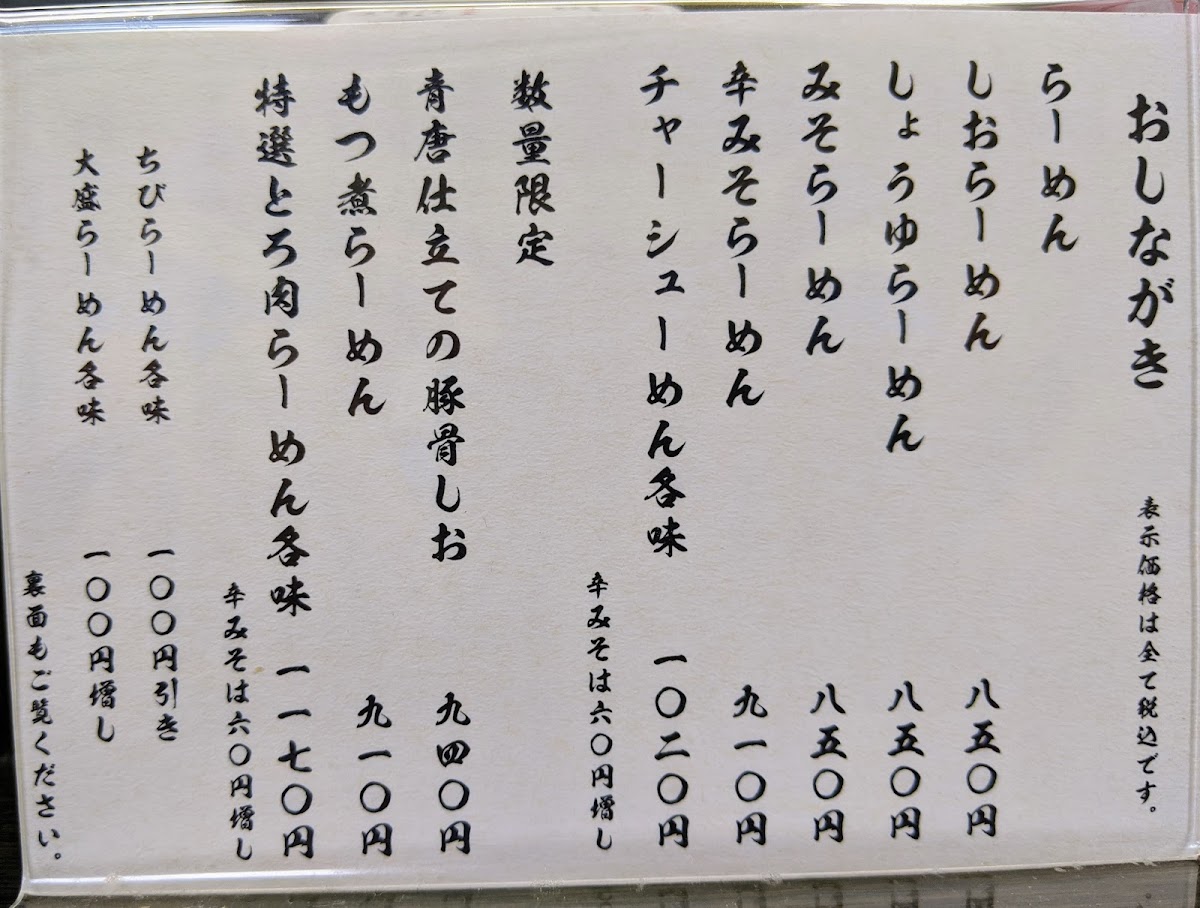 おしながき
表示価格は全て税込です。
らーめん
しおらーめん 八五〇円
しょうゆらーめん 八五〇円
みそらーめん 八五〇円
辛みそらーめん 九一〇円
チャーシューめん各味 一〇二〇円
辛みそは六〇円増し
数量限定
青唐仕立ての豚骨しお 九四〇円
もつ煮らーめん 九一〇円
特選とろ肉らーめん各味 一一七〇円
辛みそは六〇円増し
ちびらーめん各味 一〇〇円引き
大盛らーめん各味 一〇〇円増し
裏面もご覧ください。